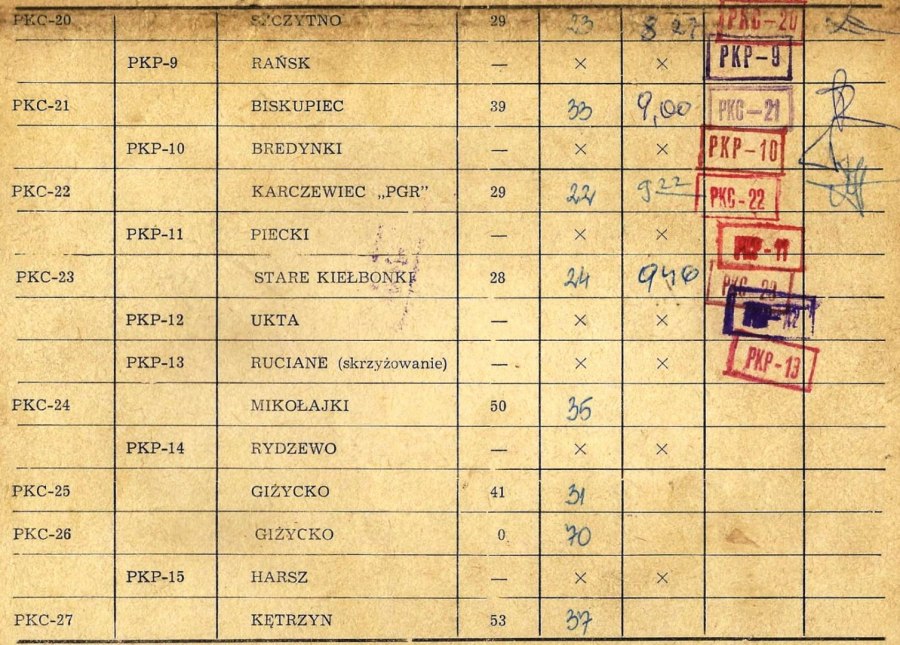 PKC-20 SZCZYTNO 29 23 8 27 PKC-20
PKP-9 RAŃSK — × × PKP-9
PKC-21 BISKUPIEC 39 33 9,00 PKC-21
PKP-10 BREDYNKI — × × PKP-10
PKC-22 KARCZEWIEC „PGR” 29 22 9 22 PKC-22
PKP-11 PIECKI — × × PKP-11
PKC-23 STARE KIEŁBONKI 28 24 946 PKC-23
PKP-12 UKTA — × × PKP-12
PKP-13 RUCIANE (skrzyżowanie) — × × PKP-13
PKC-24 MIKOŁAJKI 50 35
PKP-14 RYDZEWO — × ×
PKC-25 GIŻYCKO 41 31
PKC-26 GIŻYCKO 0 70
PKP-15 HARSZ — × ×
PKC-27 KĘTRZYN 53 37